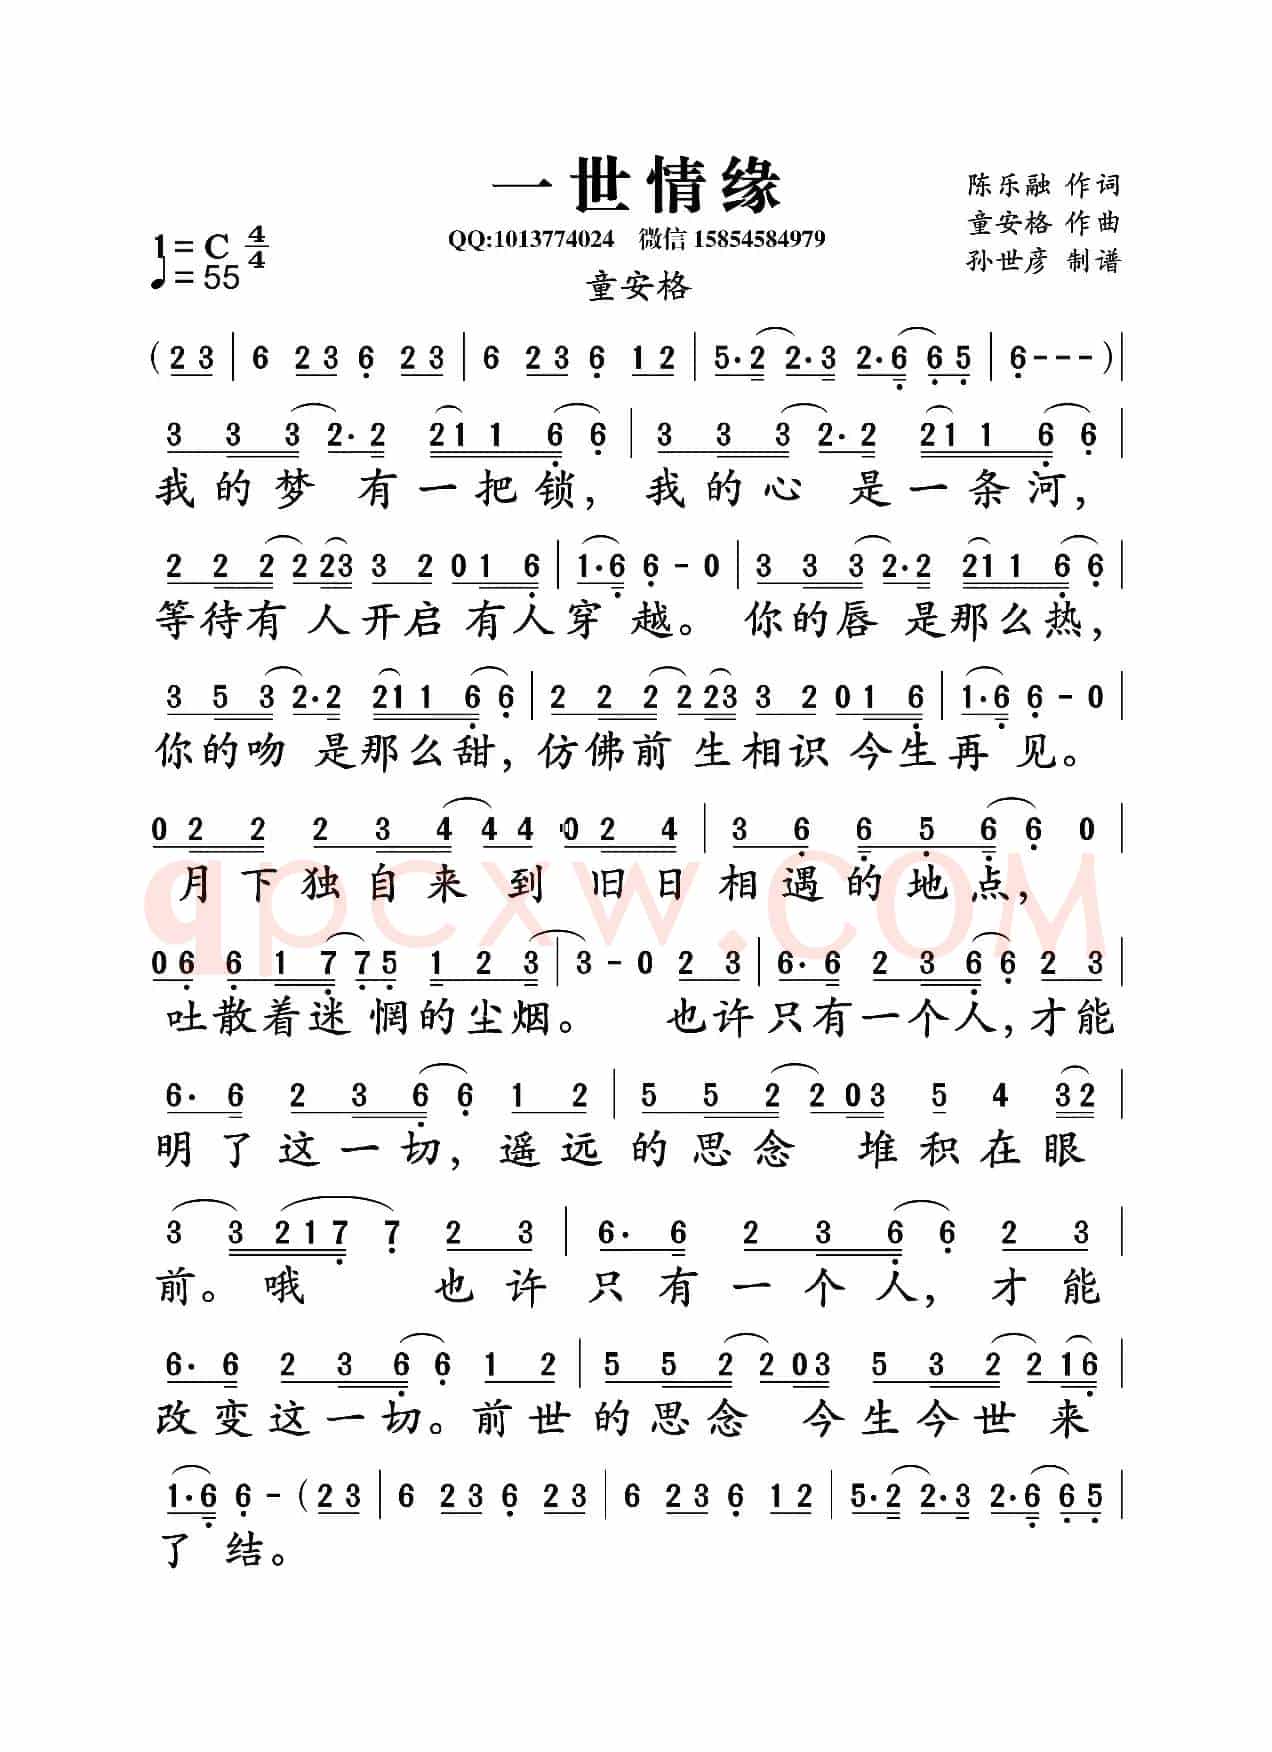 一世情缘
陈乐融 作词
QQ:1013774024 微信 15854584979
童安格 作曲
1=C 4/4
孙世彦 制谱
♩=55
童安格
(2 3 | 6 2 3 6 2 3 | 6 2 3 6 1 2 | 5·2 2·3 2·6 6 5 | 6 - - - ) |
3 3 3 2·2 2 1 1 6 6 | 3 3 3 2·2 2 1 1 6 6 |
我的梦 有一把锁, 我的心 是一条河,
2 2 2 2 2 3 3 2 0 1 6 | 1·6 6 - 0 | 3 3 3 2·2 2 1 1 6 6 |
等待有 人开启 有人穿 越。 你的唇 是那么热,
3 5 3 2·2 2 1 1 6 6 | 2 2 2 2 2 3 3 2 0 1 6 | 1·6 6 - 0 |
你的吻 是那么甜, 仿佛前 生相识 今生再 见。
0 2 2 2 3 4 4 4 0 2 4 | 3 6 6 5 6 6 0 |
月下独自来 到 旧日相遇的地点,
qpcxw.COM
0 6 6 1 7 7 5 1 2 3 | 3 - 0 2 3 | 6·6 2 3 6 6 2 3 |
吐散着迷 惘的尘烟。 也许只有一个人, 才能
6·6 2 3 6 6 1 2 | 5 5 2 2 0 3 5 4 3 2 |
明了这一切, 遥远的思念 堆积在眼
3 3 2 1 7 7 2 3 | 6·6 2 3 6 6 2 3 |
前。 哦 也许只有一个人, 才能
6·6 2 3 6 6 1 2 | 5 5 2 2 0 3 5 3 2 2 1 6 |
改变这一切。 前世的思念 今生今世来
1·6 6 - (2 3 | 6 2 3 6 2 3 | 6 2 3 6 1 2 | 5·2 2·3 2·6 6 5 |
了 结。